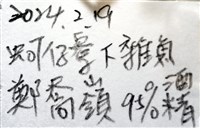 2024.2.19
蚵仔寮下雜魚
鄭喬嶺 95%酒精